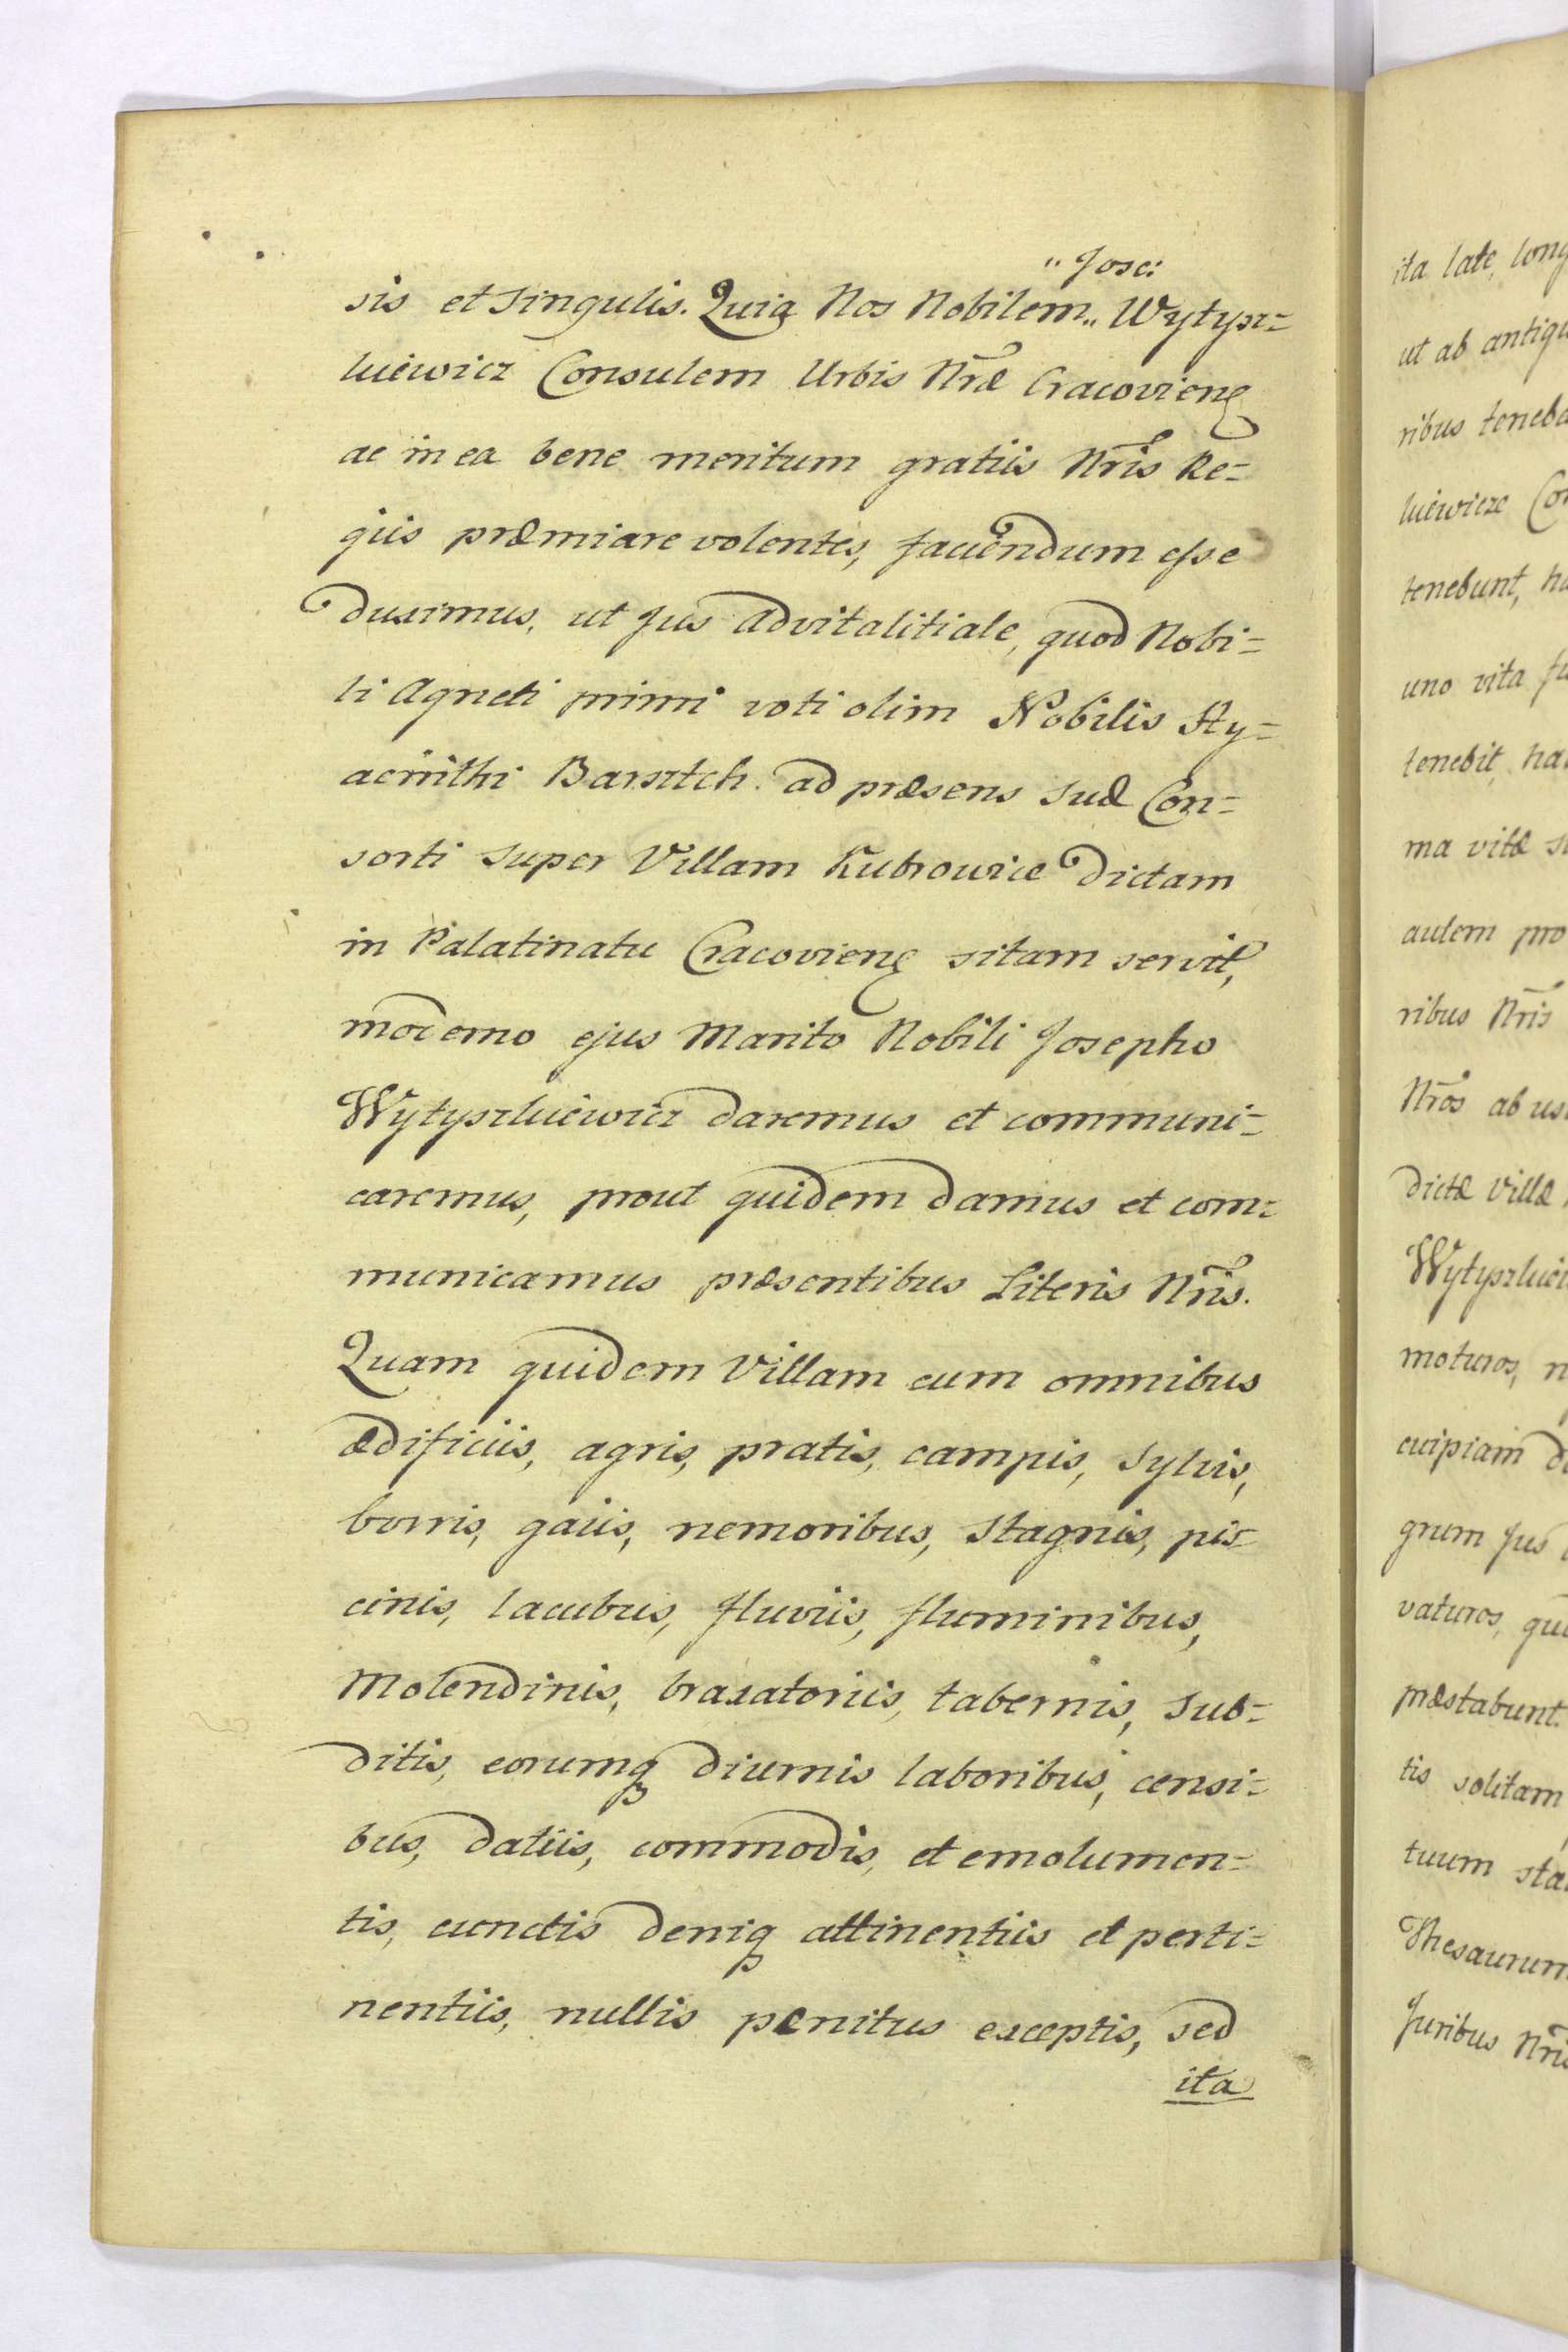 " Jose:
sis et singulis. Quia Nos Nobilem " Wytysz=
kiewicz Consulem Urbis Nrae Cracoviens
ac in ea bene meritum gratiis Nris Re=
giis præmiare volentes, faciendum esse
duximus, ut Jus advitalitiale, quod Nobi=
li Agneti primi voti olim Nobilis Hy=
acinthi Barsztch. ad præsens suæ Con=
sorti super Villam dictam
in Palatinatu Cracoviens sitam servit,
moderno ejus Marito Nobili Josepho
Wytyszkiewicz daremus et communi=
caremus, prout quidem damus et com=
municamus præsentibus Literis Nris.
Quam quidem Villam cum omnibus
ædificiis, agris, pratis, campis, sylvis,
borris, gaiis, nemoribus, stagnis, pis=
cinis, lacubus, fluviis, fluminibus,
Molendinis, braxatoriis, tabernis, sub=
ditis, eorumq diurnis laboribus, censi=
bus, datiis, commodis, et emolumen=
tis, cunctis deniq attinentiis et perti=
nentiis, nullis penitus exceptis, sed
ita
ita late, long
ut ab antiqu
ribus teneba
kiewicze Con
tenebunt, ha
uno vita fu
tenebit, ha
ma vitæ su
autem pro
ribus Nris
Nros ab us
dictæ Villæ
Wytyszkiew
moturos, n
cuipiam d
grum Jus
vaturos, qu
præstabunt.
tis solitam
tuum sta
Thesaurum
Juribus Nris